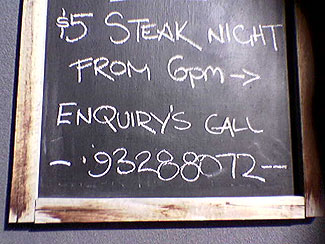 $5 STEAK NIGHT
FROM 6pm ->
ENQUIRY'S CALL
- . 93288072 --